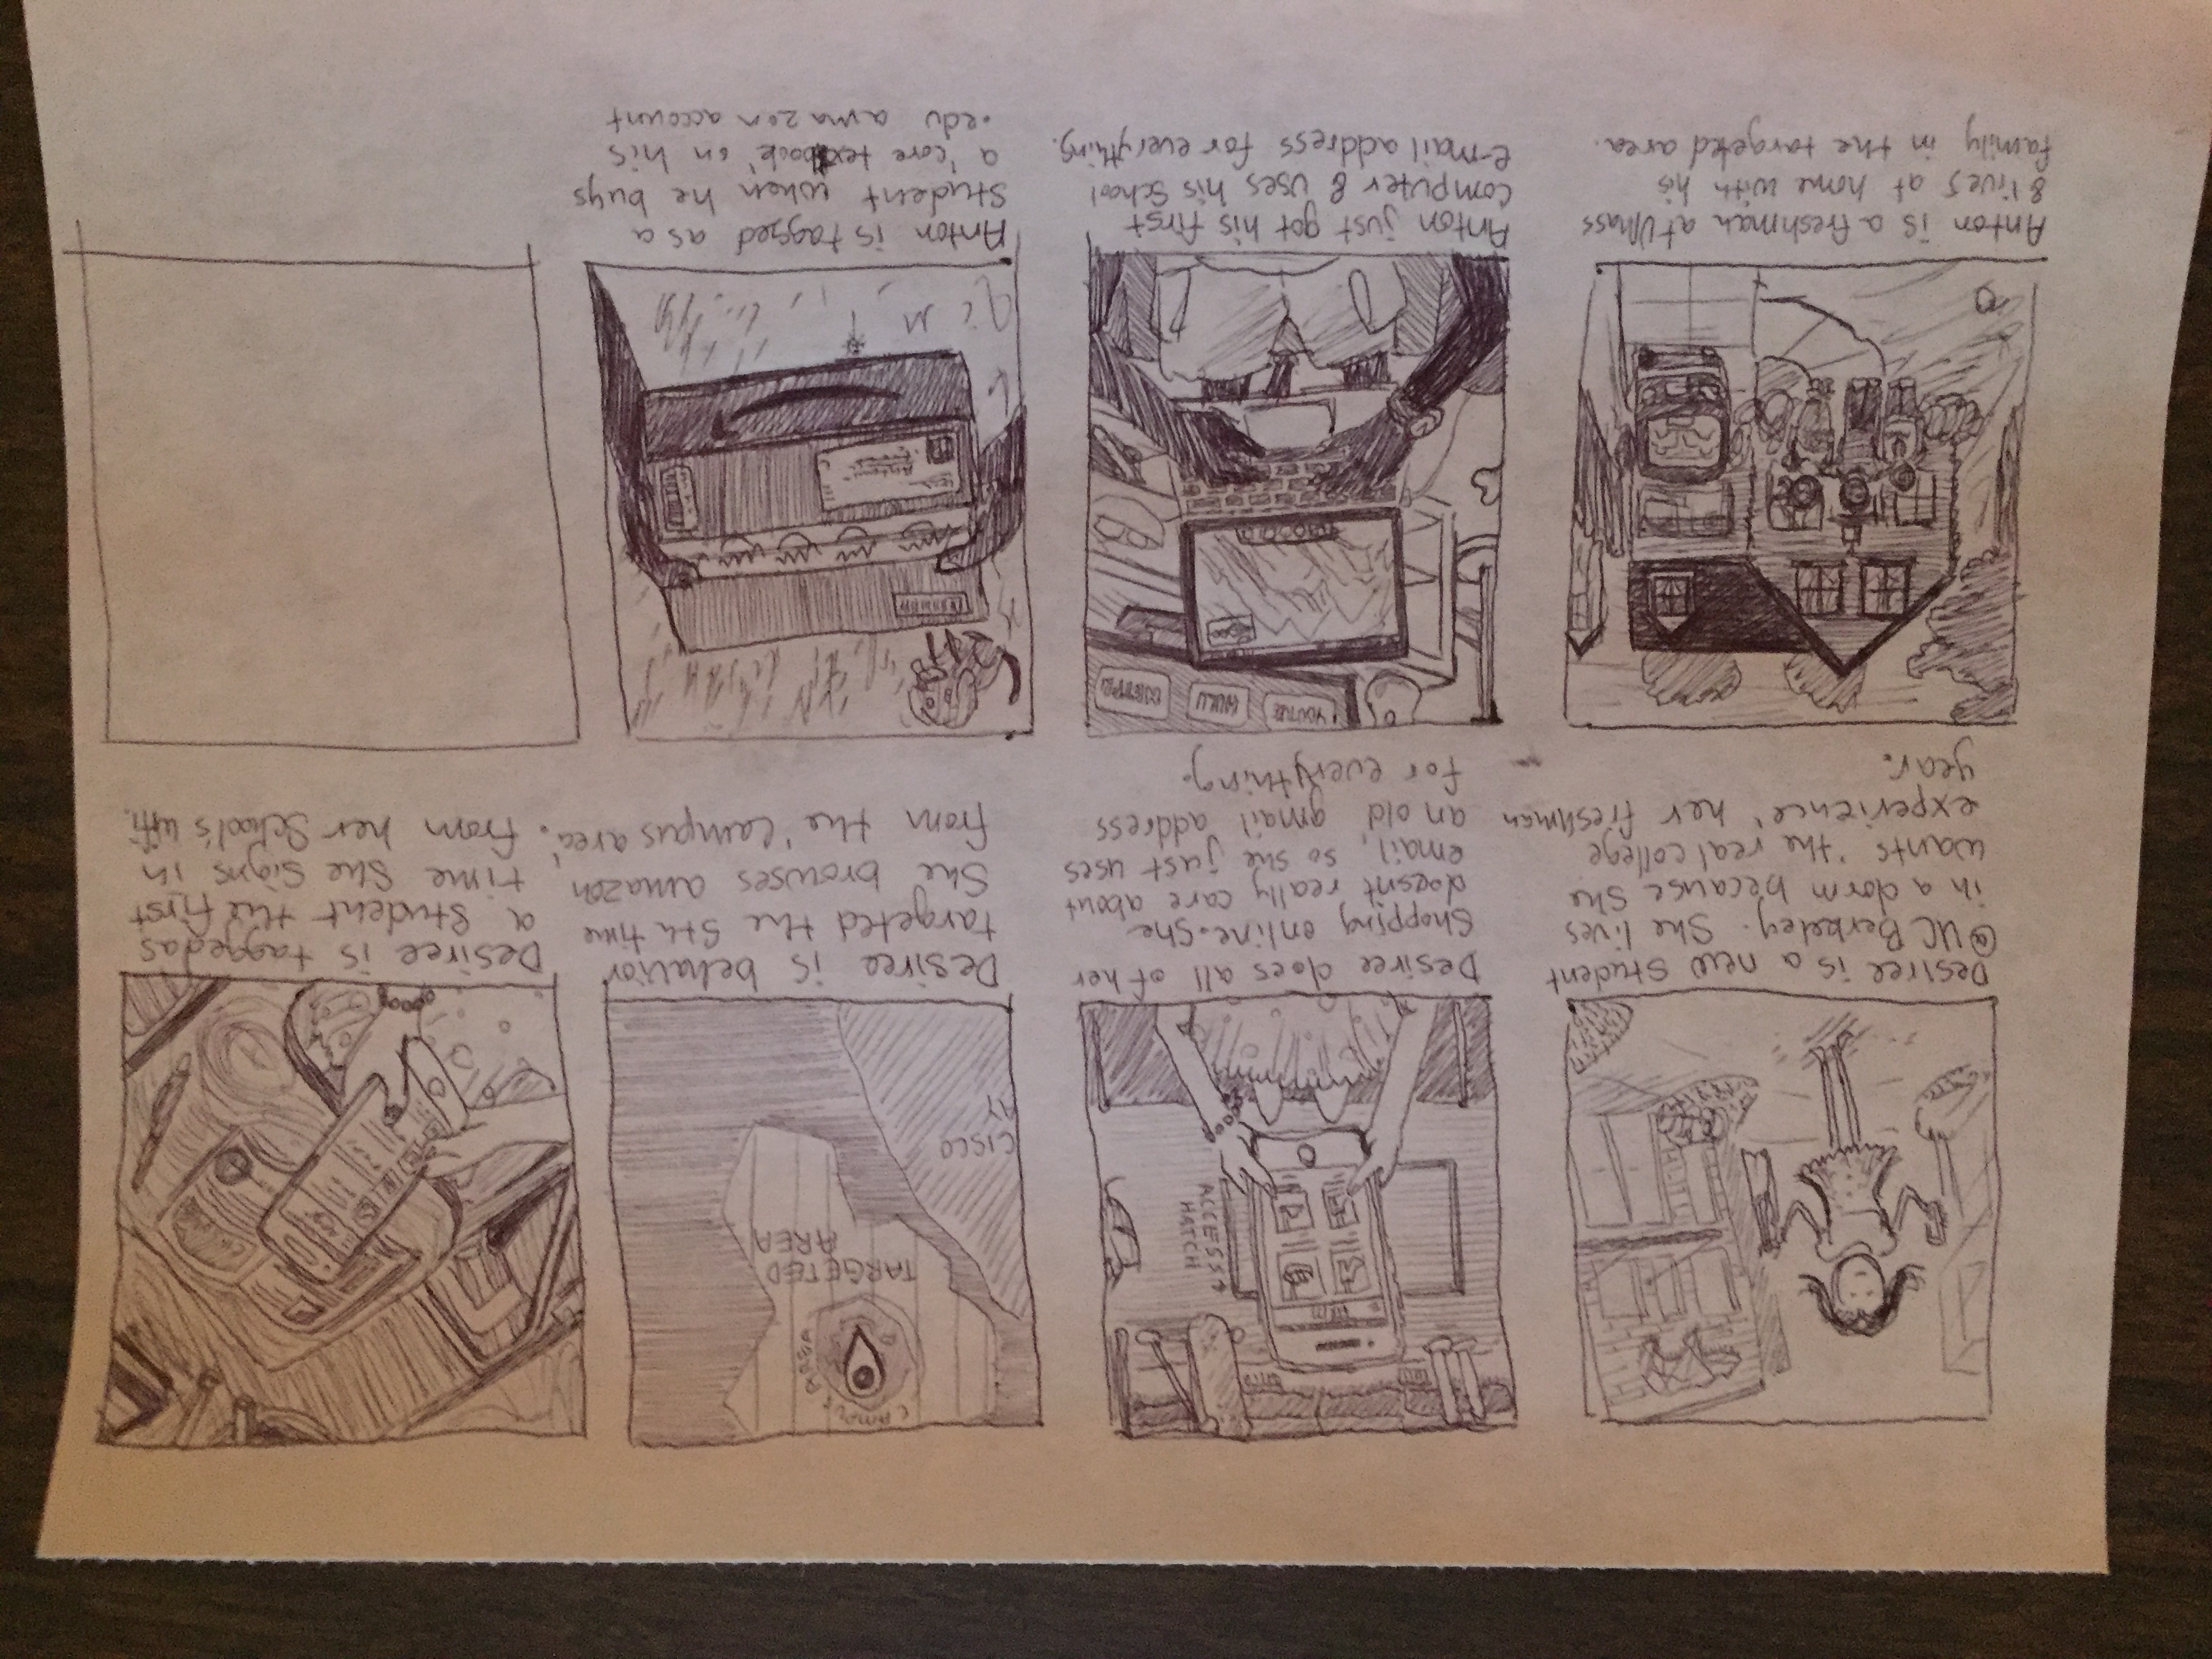 ACCESS
HATCH
CAMPUS AREA
TARGETED
AREA
CISCO
AY
Desiree is a new student
@UC Berkeley. She lives
in a dorm because she
wants 'the real college
experience' her freshman
year.
Desiree does all of her
shopping online. She
doesn't really care about
email, so she just uses
an old gmail address
for everything.
Desiree is behavior
targeted the 5th time
She browses amazon
from the 'Campus area'.
Desiree is tagged as
a student the first
time She Signs in
from her School's wifi.
YOUTUBE
HULU
Anton is a freshman at UMass
& lives at home with his
family in the targeted area.
Anton just got his first
computer & uses his School
e-mail address for everything.
Anton is tagged as a
student when he buys
a 'core textbook' on his
.edu amazon account